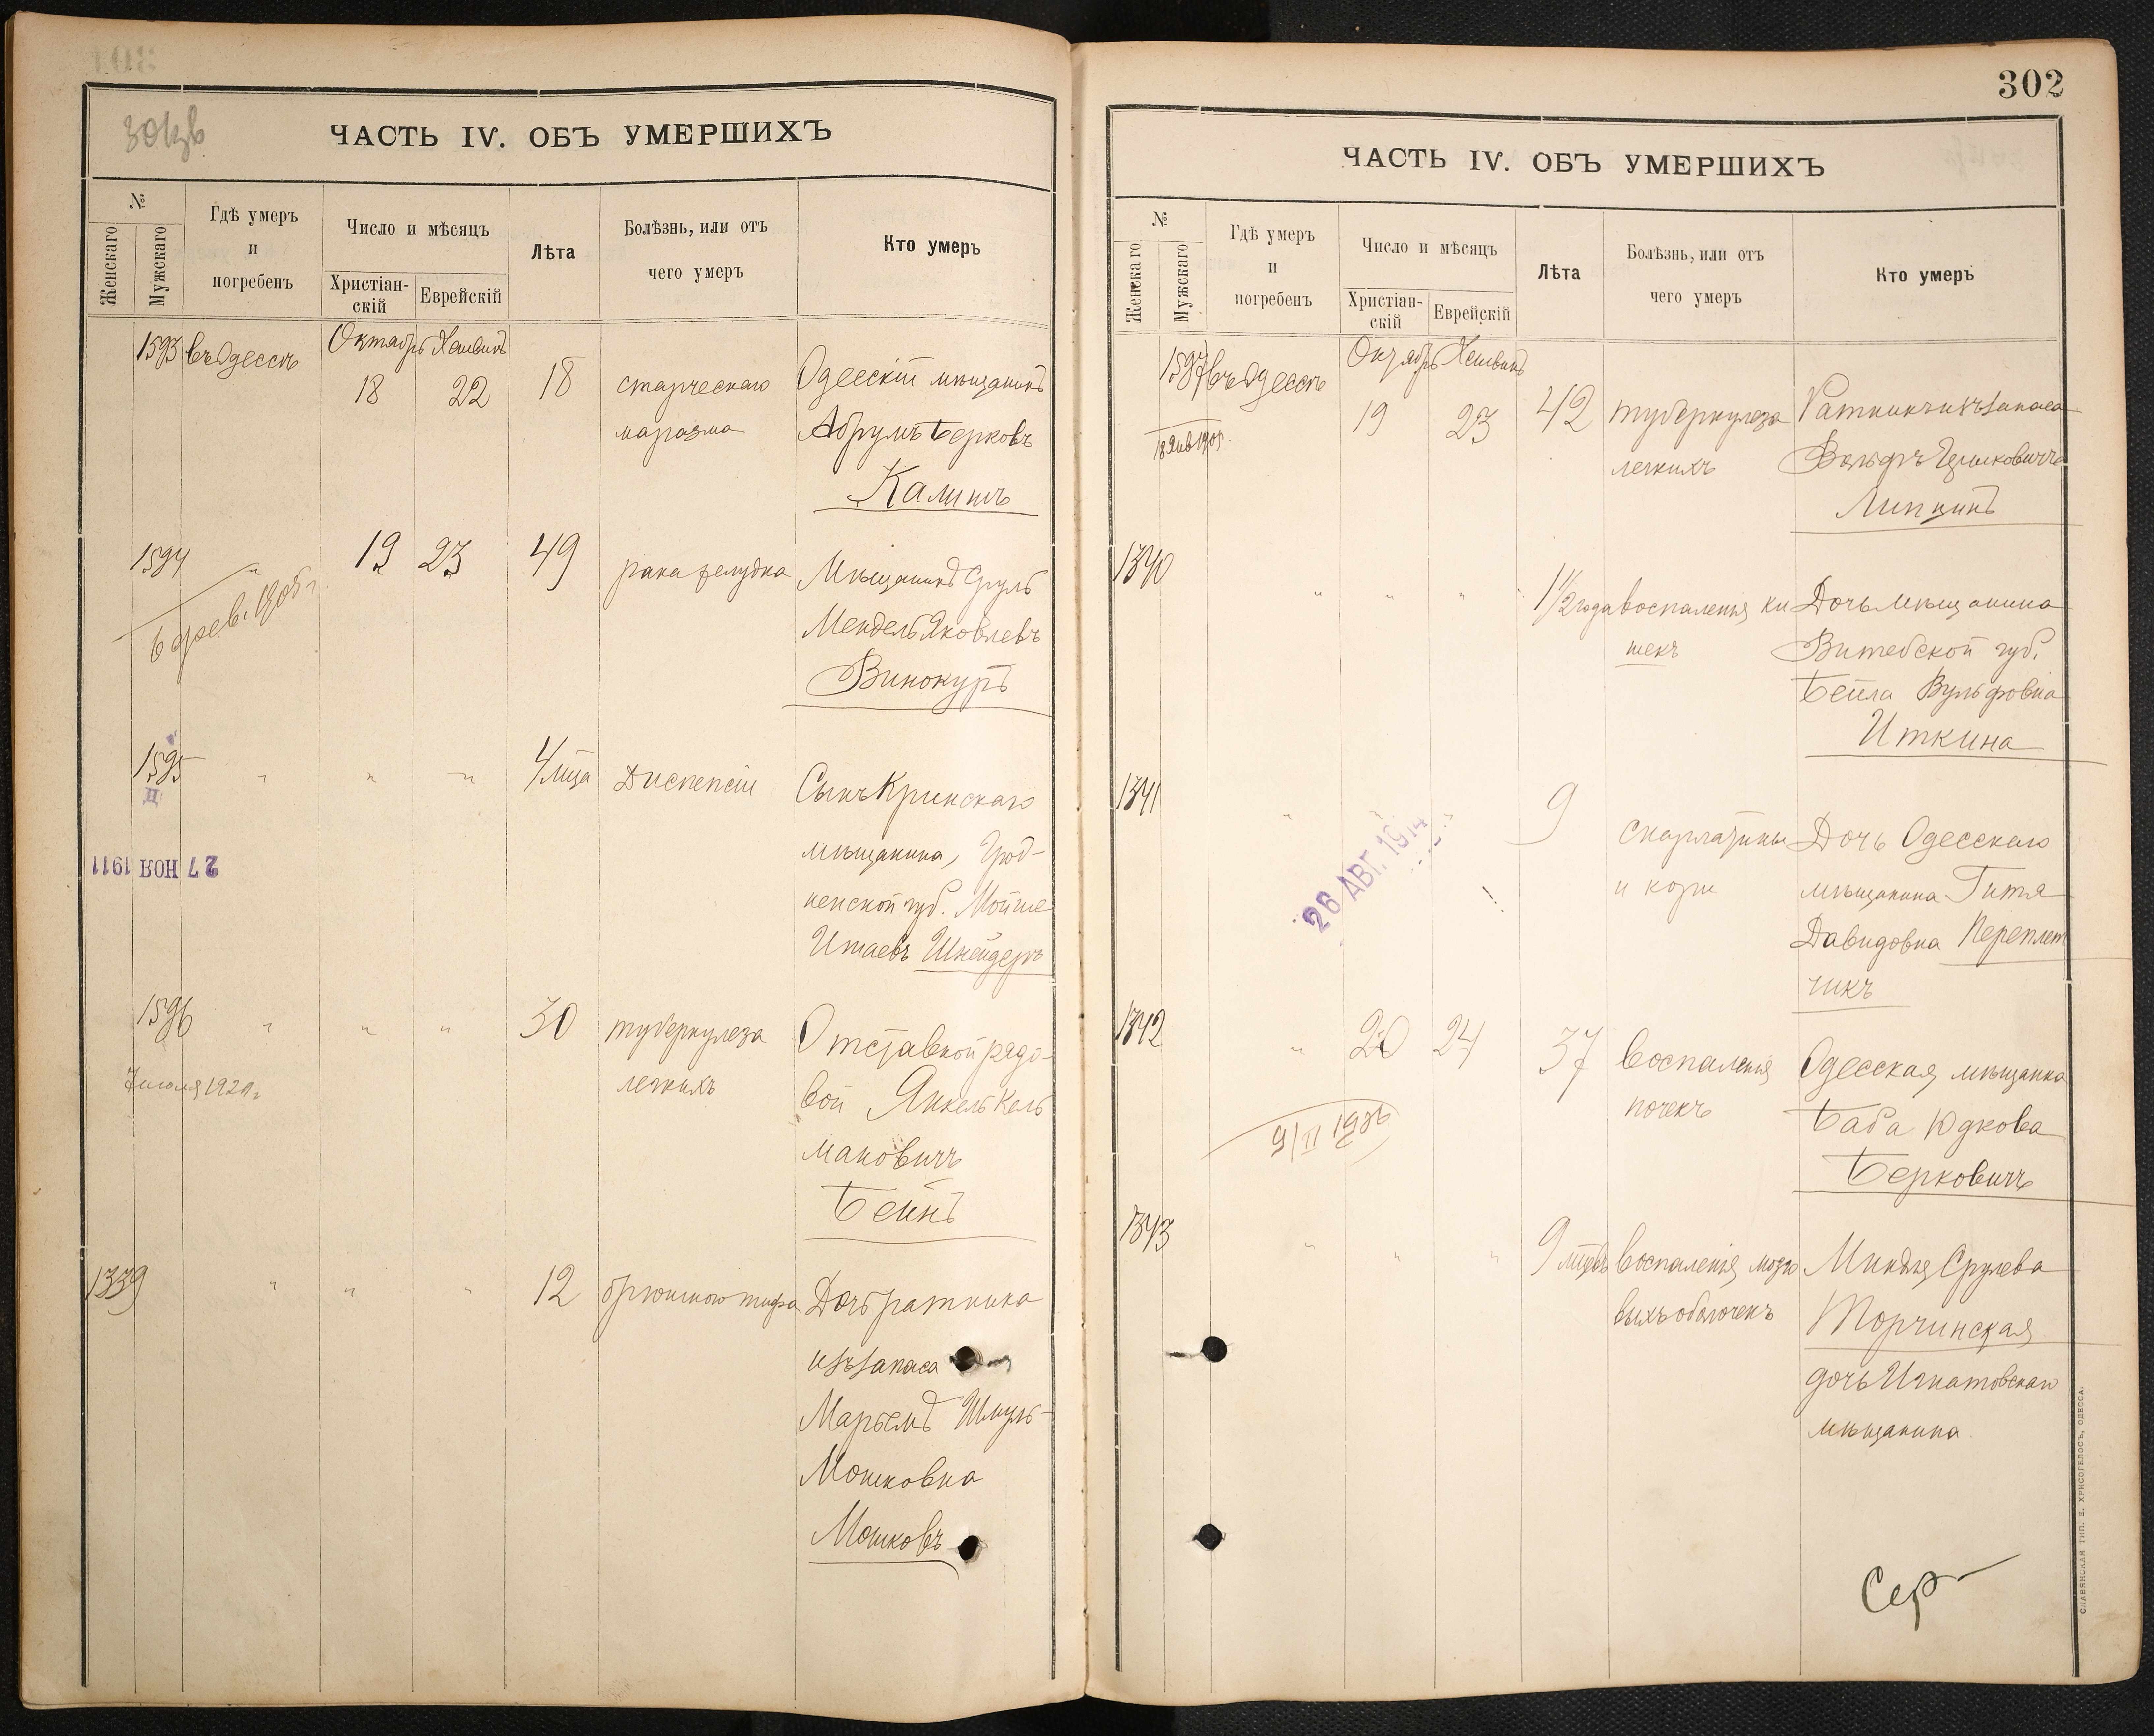 ЧАСТЬ IV. ОБЪ УМЕРШИХЪ
№
Женскаго
Мужскаго
Гдѣ умеръ
и
погребенъ
Число и мѣсяцъ
Христіан-
скій
Еврейскій
Лѣта
Болѣзнь, или отъ
чего умеръ
Кто умеръ
1593 въ Одессѣ Октябрь Хешванъ
18 22 18 старческаго Одесскій мѣщанинъ
маразма Абрумъ Берковъ
Калишъ
1594 " 19 23 49 рака желудка Мѣщанинъ Сруль
6 февр. 1905 г. Мендель Яковлевъ
Винокуръ
1595 " " " 4 м-ца Диспепсіи Сынъ Кринскаго
II
мѣщанина, Грод-
27 НОЯ 1911
ненской губ. Мойше
Итаевъ Шнейдеръ
1596 " " " 30 туберкулеза Отставной рядо-
7 июля 1920 г. легкихъ вой Янкель Кель
мановичъ
Бейнъ
1339 " " " 12 брюшного тифа Дочь ратника
изъ запаса
Марьемъ Шмуль-
Мошковна
Мошковъ
302
ЧАСТЬ IV. ОБЪ УМЕРШИХЪ
№
Женскаго
Мужскаго
Гдѣ умеръ
и
погребенъ
Число и мѣсяцъ
Христіан-
скій
Еврейскій
Лѣта
Болѣзнь, или отъ
чего умеръ
Кто умеръ
1597 въ Одессѣ Октябрь Хешванъ
19 23 42 туберкулеза Ратникъ изъ запаса
18 Янв 1905. легкихъ Вольфъ Ицковичъ
Липкинъ
1340 " " " 1 1/2 года воспаленія ки Дочь мѣщанина
шекъ Витебской губ.
Бейла Вульфовна
Иткина
1341 " 9 скарлатины Дочь Одесскаго
26 АВГ. 1914
и кори мѣщанина Гитя
Давидовна Переплет
чикъ
1342 " 20 24 37 воспаленія Одесская мѣщанка
9/II почекъ Баба Юдкова
Берковичъ
1343 " " " 9 воспаленія мозго Миндля Срулева
выхъ оболочекъ Торчинская
дочь Игнатовскаго
мѣщанина
СЛАВЯНСКАЯ ТИП. Е. ХРИСОГЕЛОСЪ, ОДЕССА.